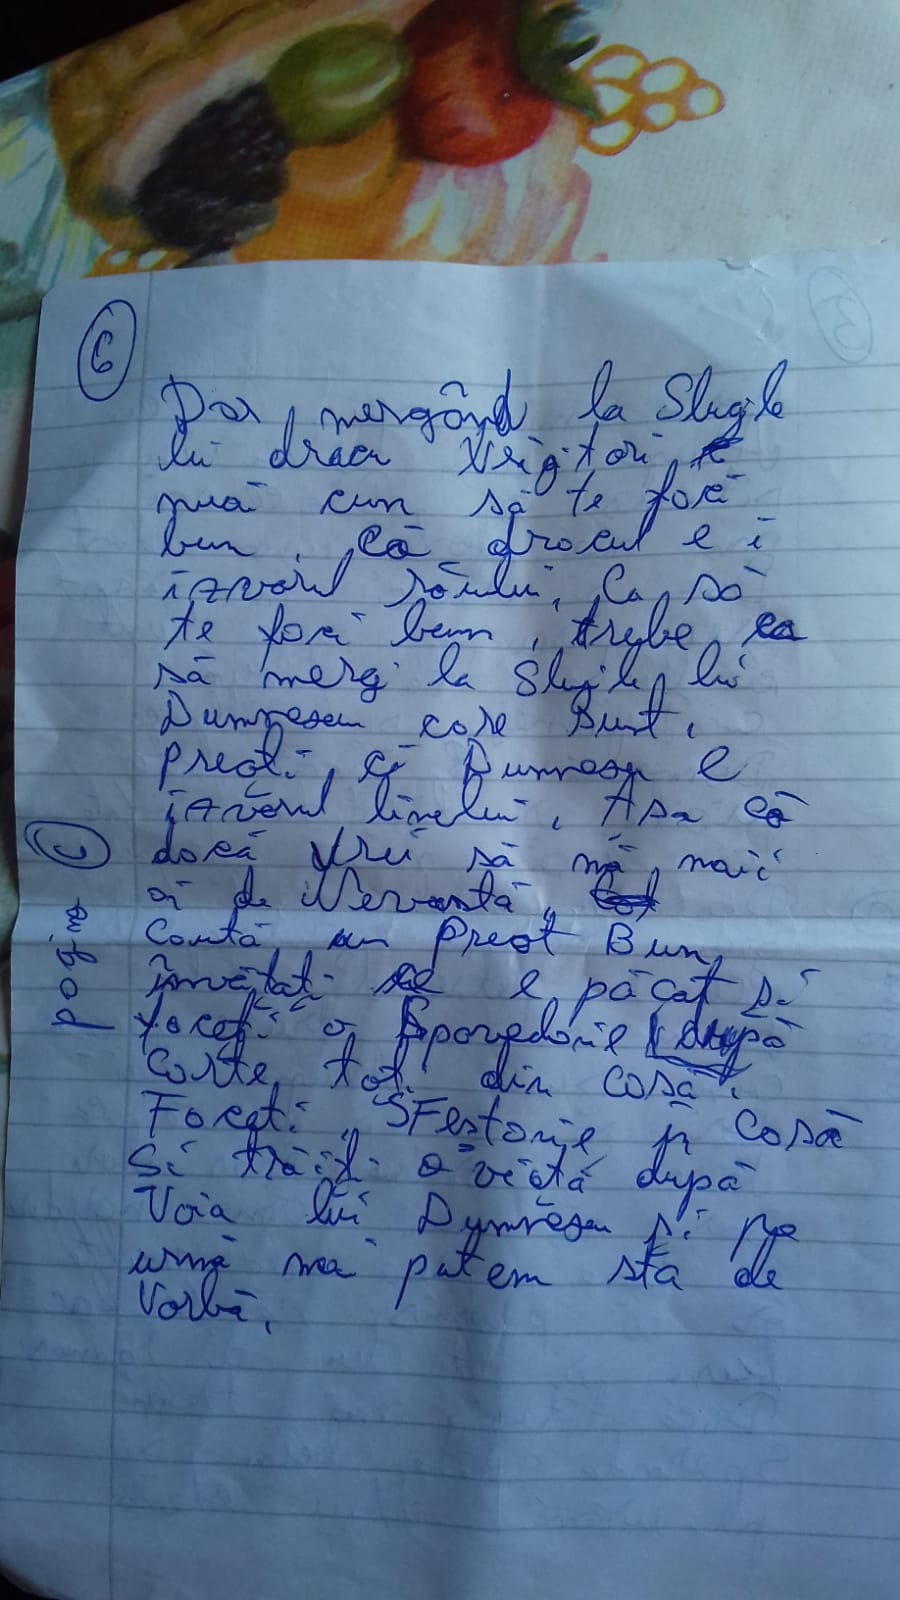 6
Dar mergând la Slugile
lui dracu Vrăgitori
nuă cum să te facă
bun, Că dracul e î
izvorul răului, Ca, să
te facă bun, trybe ca
să mergi la Slugile lui
Dumneseu care Sunt,
preoți, că Dumnesu e
izvorul binelui, Asa că
dacă Vrei să mă maĭ
ai de Nevastă,
Caută un Preot Bun,
învătati ce e păcat și
faceti o Spovedanie după
Carte, toti din casă,
Faceti SFestanie în Casă
Si trăiti o viată după
Voia lui Dumneseu și pe
urmă mai putem sta de
Vorbă,
pagina 6